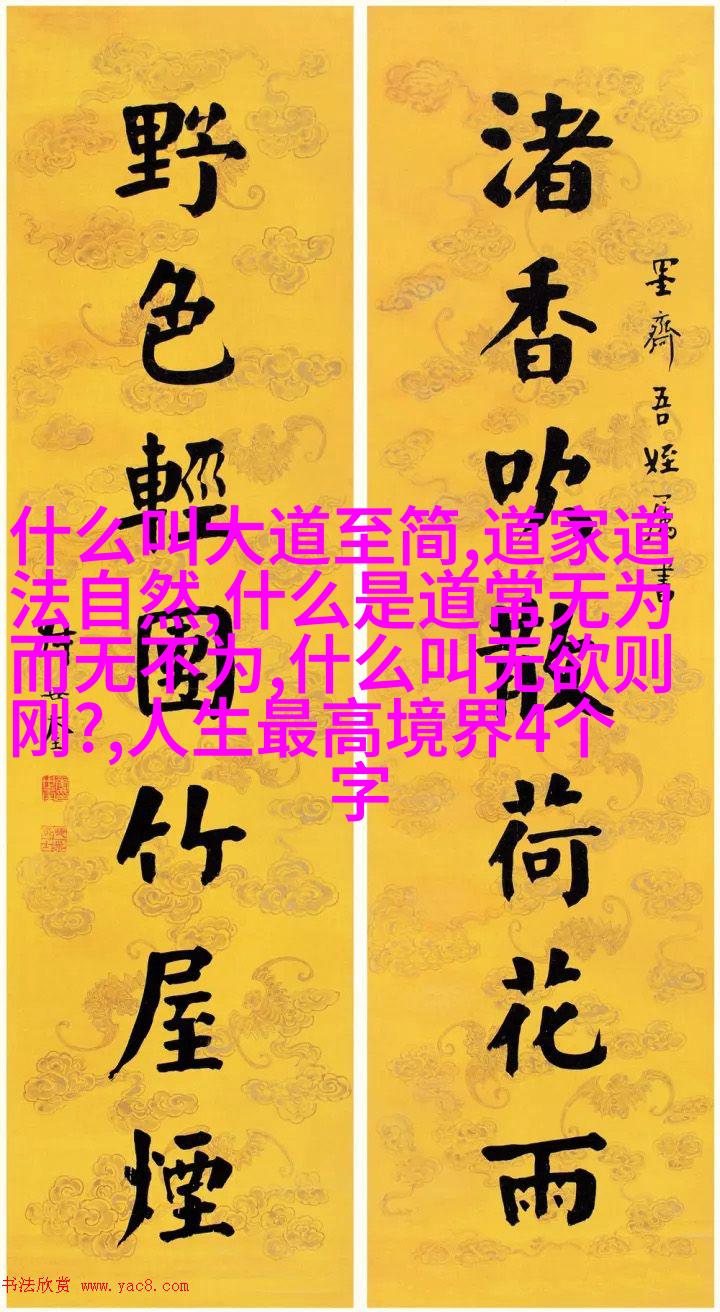 渚香吹散荷花雨
墨齋吾姪屬書
野色輕團竹屋煙
什么叫大道至简,道家道
法自然,什么是道常无为
而无不为,什么叫无欲则
刚?,人生最高境界4个
字
书法欣赏 www.yac8.com